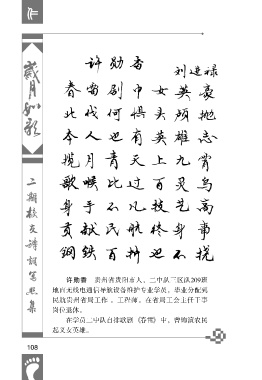 许勋香
刘连禄
春雷剧中女英豪
北伐何惧头颅抛
今人也有英雄志
揽月青天上九霄
歌喉比过百灵鸟
身手不凡技艺高
贡献民航终身事
钢铁百折也不挠
许勋香 贵州省贵阳市人，二中队三区队209班
地面无线电通信导航设备维护专业学员，毕业分配到
民航贵州省局工作，工程师，在省局工会主任干事
岗位退休。
在学员二中队自排歌剧《春雷》中，曾饰演农民
起义女英雄。
岁月如歌
二期校友诗词写照集
108